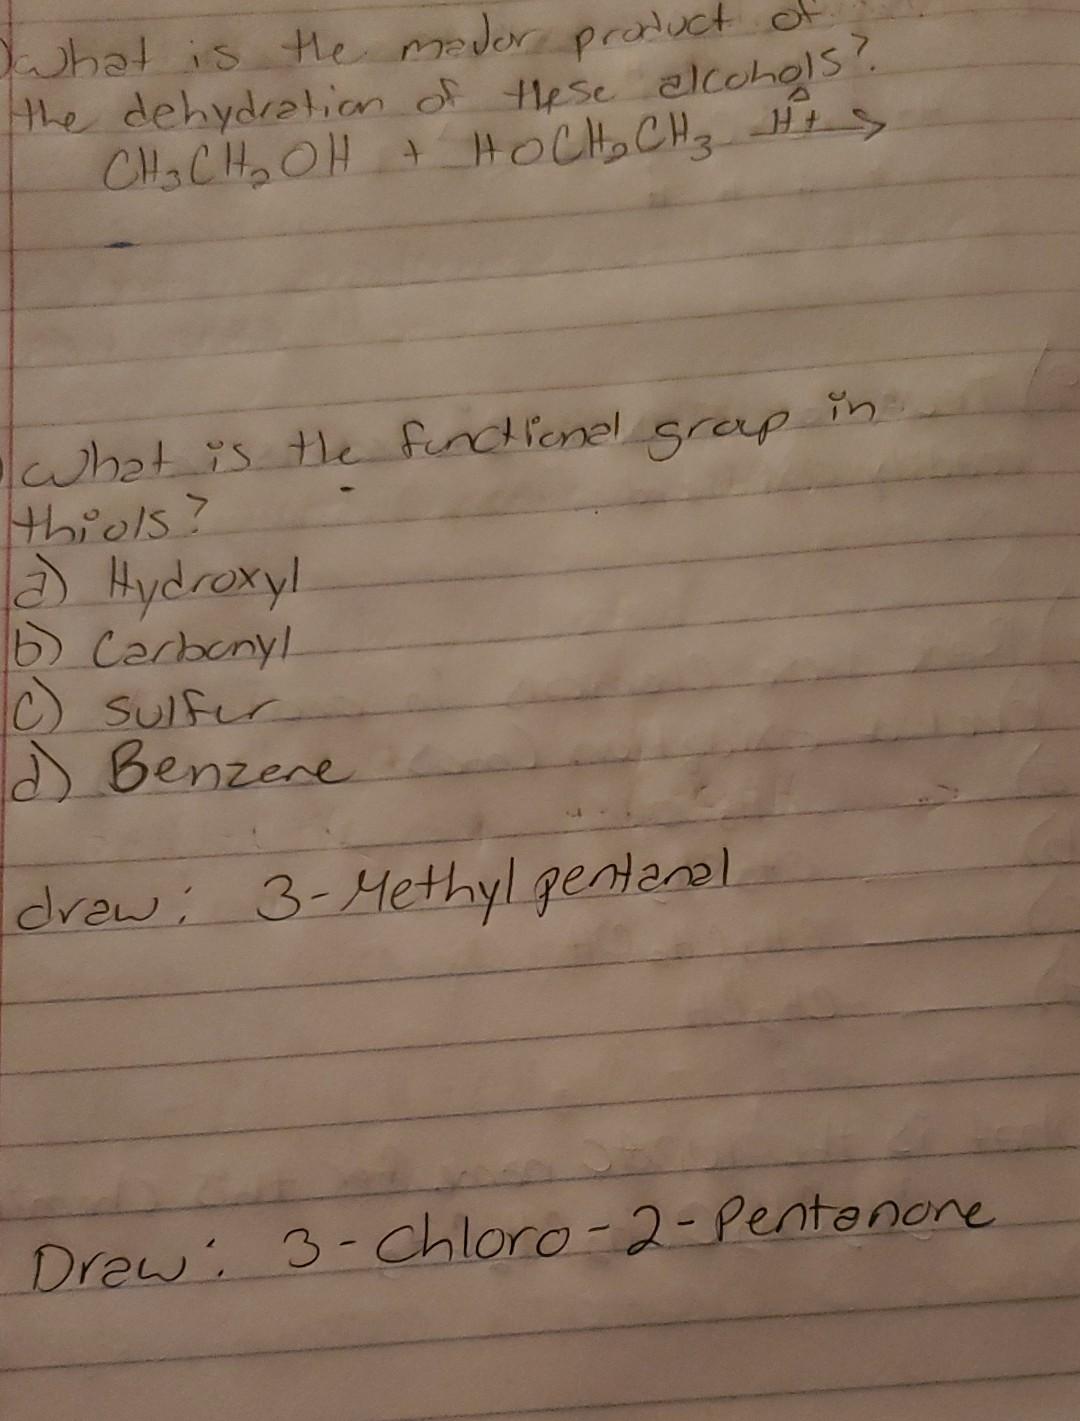 What is the major product of
the dehydration of these alcohols?
CH₃CH₂OH + HOCH₂CH₃ H⁺ Δ →
What is the functional group in
thiols?
a) Hydroxyl
b) Carbonyl
c) Sulfur
d) Benzene
draw: 3-Methyl pentanal
Draw: 3-Chloro-2-Pentanone